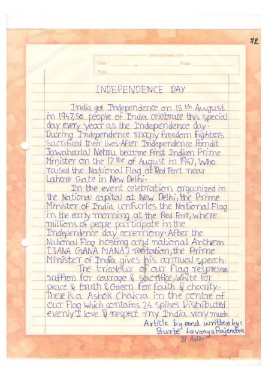 78
Date
Page
INDEPENDENCE DAY
India got Independence on 15th August
in 1947, so people of India celebrate this special
day every year as the Independence day.
During Independence many freedom fighters
sacrificed their lives. After Independence Pandit
Jawaharlal Nehru became first Indian Prime
Minister on the of August in 1947, Who
raised the National Flag at Red Fort near
Lahore Gate in New Delhi.
In the event celebration organized in
the National capital of New Delhi, the Prime
Minister of India unfurles the National Flag
in the early morning at the Red Fort, where
millions of people participate in the
Independence day ceremony. After the
National Flag hosting and national Anthem
[JANA GANA MANA] recitation, the Prime
Minister of India gives his annual speech.
The tricolour of our Flag represense
saffron for courage & sacrifice, White for
peace & truth & Green for faith & charity.
There is a Ashok Chakra in the centre of
our Flag which contains 24 spikes Distributed
evenly. I love & respect my India very much
Article by and written by:
Lavanya Rajendra